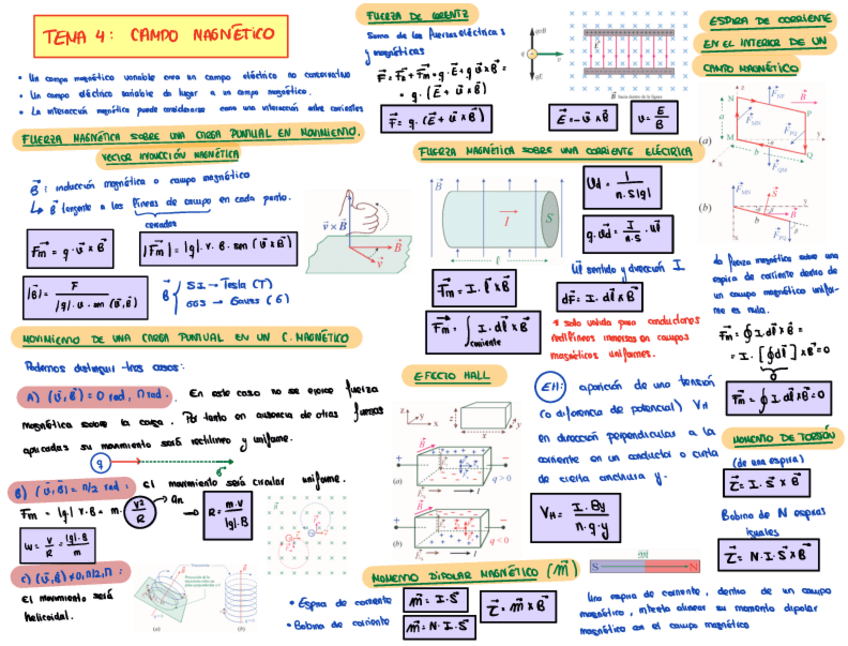 TEMA 4: CAMPO MAGNÉTICO
• Un campo magnético variable crea un campo eléctrico no conservativo
• Un campo eléctrico variable da lugar a un campo magnético.
• La interacción magnética puede considerarse como una interacción entre corrientes
FUERZA MAGNÉTICA SOBRE UNA CARGA PUNTUAL EN MOVIMIENTO.
VECTOR INDUCCIÓN MAGNÉTICA
B⃗ : inducción magnética o campo magnético
↳ B⃗ tangente a las líneas de campo en cada punto.
cerradas
F⃗m = q · v⃗ x B⃗
|F⃗m| = |q| · v · B · sen (v⃗ x B⃗)
|B⃗| = F / |q| · v · sen (v⃗, B⃗)
B⃗ { SI → Tesla (T)
CGS → Gauss (G)
v⃗ × B⃗
B⃗
v⃗
MOVIMIENTO DE UNA CARGA PUNTUAL EN UN C. MAGNÉTICO
Podemos distinguir tres casos:
A) (v⃗, B⃗) = 0 rad, π rad. En este caso no se ejerce fuerza
magnética sobre la carga. Por tanto en ausencia de otras fuerzas
aplicadas su movimiento será rectilíneo y uniforme.
q
v⃗
B) (v⃗, B⃗) = π/2 rad : el movimiento será circular uniforme.
Fm = |q| · v · B = m · v²/R → an → R = m·v / |q|·B
ω = v/R = |q|·B / m
C) (v⃗, B⃗) ≠ 0, π/2, π :
El movimiento será
helicoidal.
(a)
(b)
FUERZA DE LORENTZ
Suma de las fuerzas eléctricas
y magnéticas
F⃗ = F⃗e + F⃗m = q · E⃗ + q v⃗ x B⃗ =
= q · (E⃗ + v⃗ x B⃗)
F⃗ = q · (E⃗ + v⃗ x B⃗)
qvB
qE
v
E⃗ = - v⃗ x B⃗
v = E/B
FUERZA MAGNÉTICA SOBRE UNA CORRIENTE ELÉCTRICA
B⃗
I
S
ℓ
vd = I / n·S|q|
q · v⃗d = I / n·S · u⃗l
u⃗l sentido y dirección I
F⃗m = I · l⃗ x B⃗
dF⃗ = I · dl⃗ x B⃗
F⃗m = ∫corriente I · dl⃗ x B⃗
* solo valida para conductores
rectilíneos inmersos en campos
magnéticos uniformes.
EFECTO HALL
z
y
x
(a)
q > 0
(b)
q < 0
I
EH: aparición de una tensión
(o diferencia de potencial) VH
en dirección perpendicular a la
corriente en un conductor o cinta
de cierta anchura y.
VH = I · By / n · q · y
MOMENTO DIPOLAR MAGNÉTICO (m⃗)
• Espira de corriente
m⃗ = I · S⃗
• Bobina de corriente
m⃗ = N · I · S⃗
τ⃗ = m⃗ x B⃗
ESPIRA DE CORRIENTE
EN EL INTERIOR DE UN
CAMPO MAGNÉTICO
N
P
M
Q
a
b
(a)
(b)
la fuerza magnética sobre una
espira de corriente dentro de
un campo magnético unifor-
me es nula.
F⃗m = ∮ I · dl⃗ x B⃗ =
= I · [∮ dl⃗] x B⃗ = 0
0
F⃗m = ∮ I · dl⃗ x B⃗ = 0
MOMENTO DE TORSIÓN
(de una espira)
τ⃗ = I · S⃗ x B⃗
Bobina de N espiras
iguales
τ⃗ = N · I · S⃗ x B⃗
S
N
Una espira de corriente, dentro de un campo
magnético, intenta alinear su momento dipolar
magnético con el campo magnético